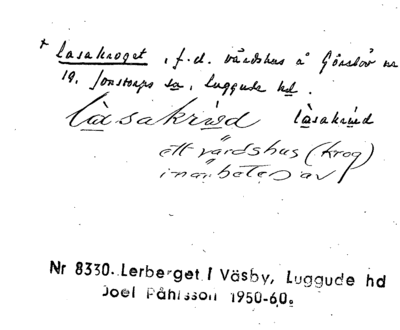 + Lasakroget, f.d. vårdshus å Görslöv nr
19. Jonstorps sn, Luggude hd.
làsakrìŋd làsakrìŋd
ett värdshus (krog)
i närheten av
Nr 8330. Lerberget i Väsby, Luggude hd
Joel Påhlsson 1950-60.